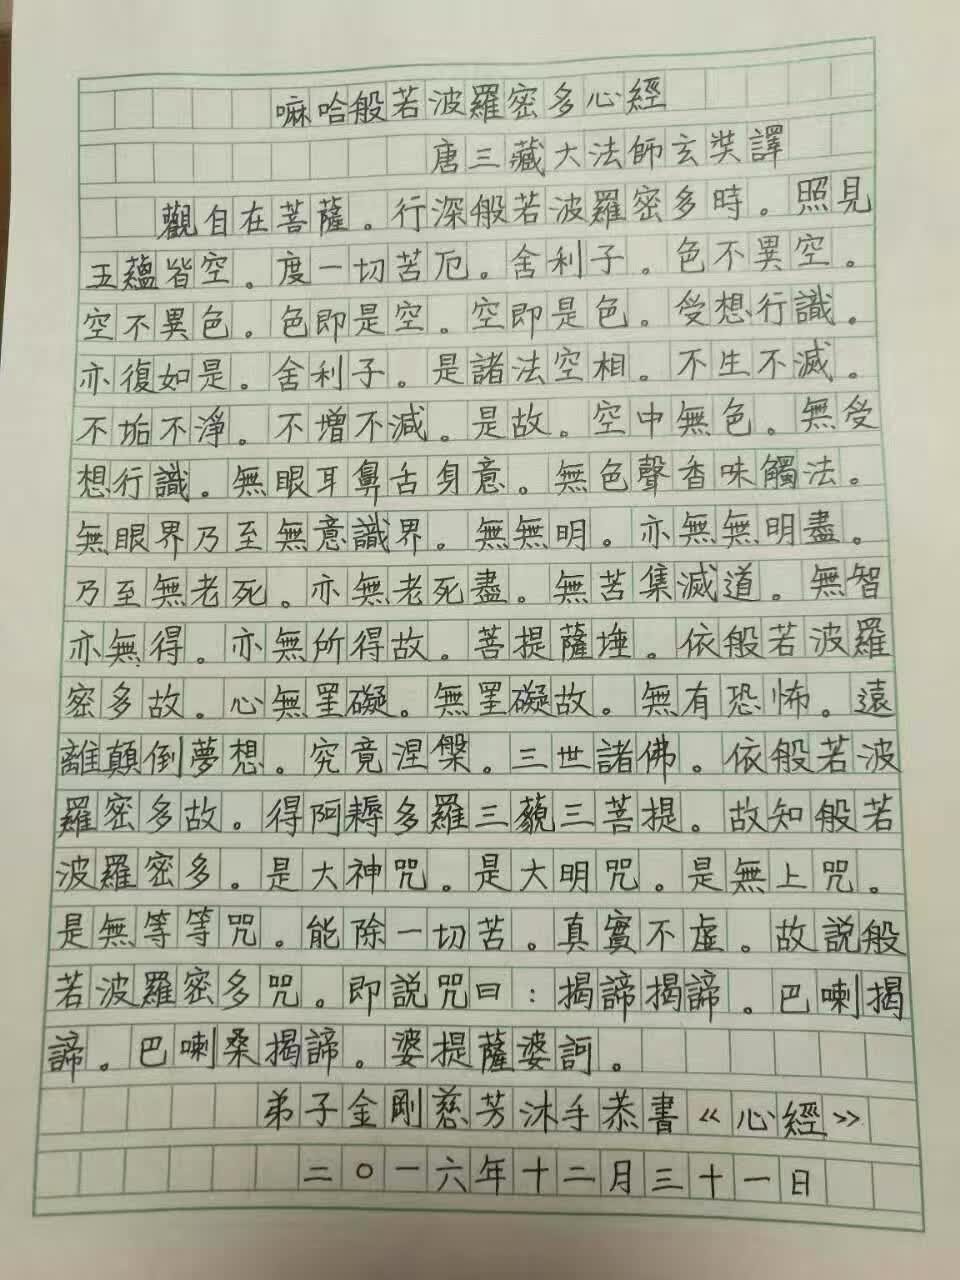 嘛哈般若波羅密多心經
唐三藏大法師玄奘譯
觀自在菩薩。行深般若波羅密多時。照見
五蘊皆空。度一切苦厄。舍利子。色不異空。
空不異色。色即是空。空即是色。受想行識。
亦復如是。舍利子。是諸法空相。不生不滅。
不垢不淨。不增不減。是故。空中無色。無受
想行識。無眼耳鼻舌身意。無色聲香味觸法。
無眼界乃至無意識界。無無明。亦無無明盡。
乃至無老死。亦無老死盡。無苦集滅道。無智
亦無得。亦無所得故。菩提薩埵。依般若波羅
密多故。心無罣礙。無罣礙故。無有恐怖。遠
離顛倒夢想。究竟涅槃。三世諸佛。依般若波
羅密多故。得阿耨多羅三藐三菩提。故知般若
波羅密多。是大神咒。是大明咒。是無上咒。
是無等等咒。能除一切苦。真實不虛。故說般
若波羅密多咒。即說咒曰：揭諦揭諦。巴喇揭
諦。巴喇桑揭諦。婆提薩婆訶。
弟子金剛慈芳沐手恭書《心經》
二〇一六年十二月三十一日